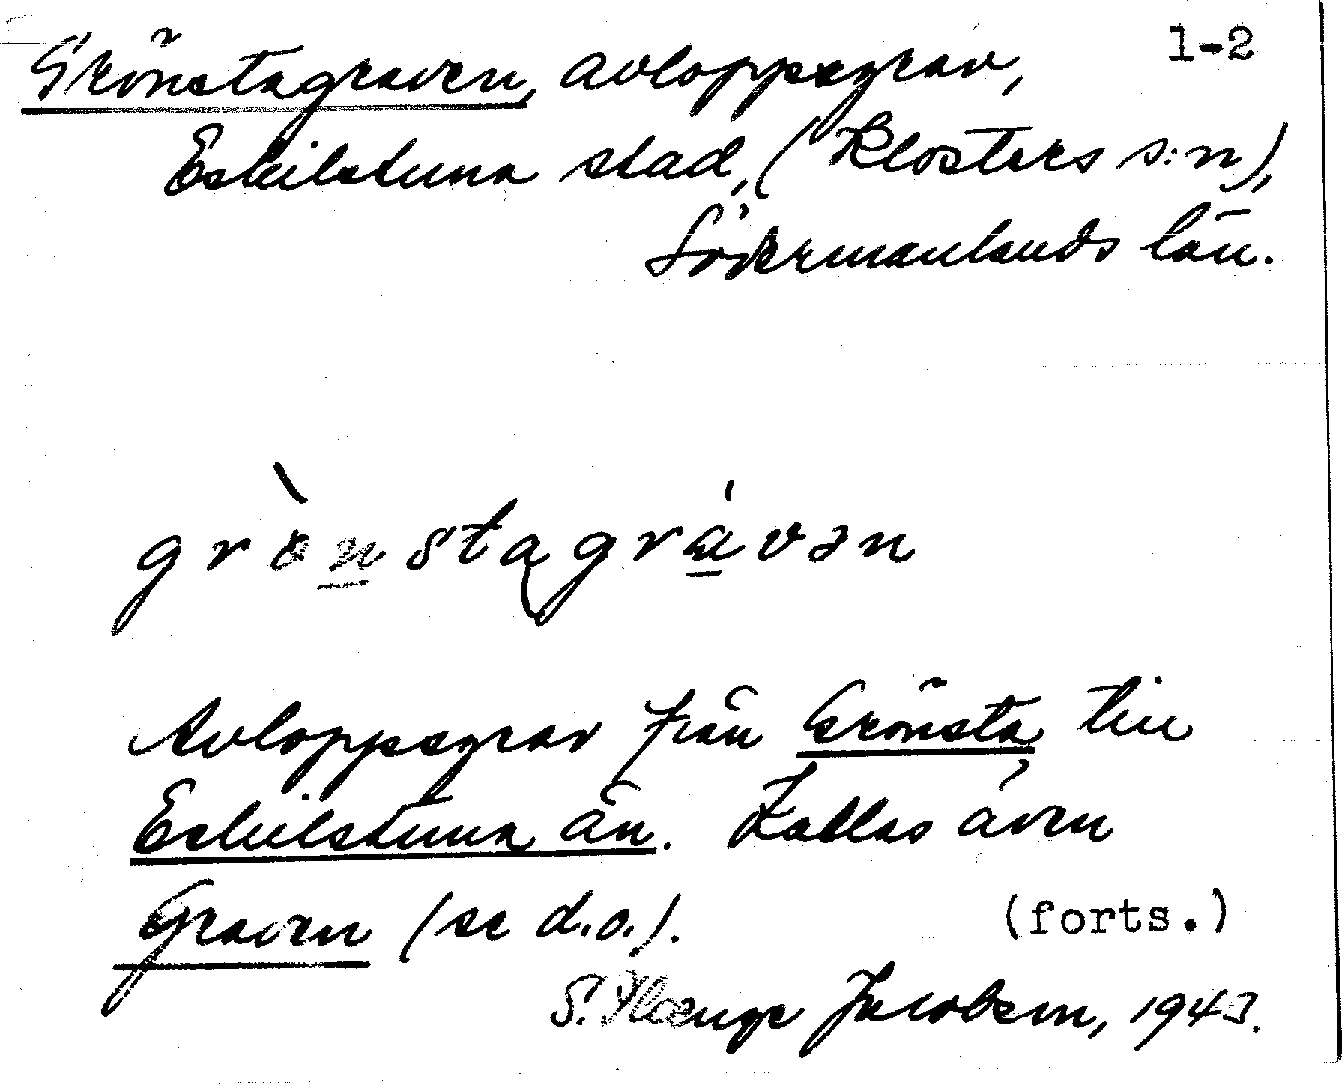 Grönstagraven, avloppsgrav, 1-2
Eskilstuna stad, (Klosters s:n),
Södermanlands län.
grö̀nstagrávən
Avloppsgrav från Grönsta till
Eskilstuna ån. Kallas även
Graven (se d.o.). (forts.)
S. Jacobsen, 1943.